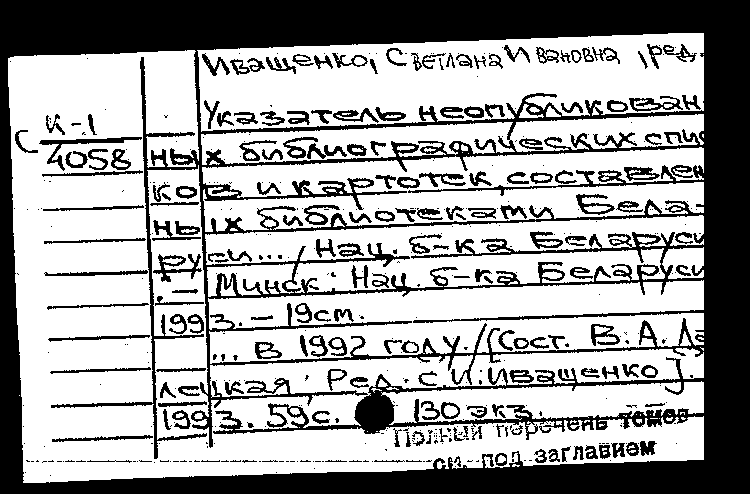 Иващенко, Светлана Ивановна, ред.
К-1
4058
Указатель неопубликован-
ных библиографических спис
ков и картотек, составлен
ных библиотеками Бела-
руси... / Нац. б-ка Беларуси
. - Минск: Нац. б-ка Беларуси
1993. - 19 см.
... в 1992 году. / [Сост. В. А. Ла
лецкая; Ред. С. И. Иващенко].
1993. 59 с. 130 экз.
Полный перечень томов
см. под заглавием